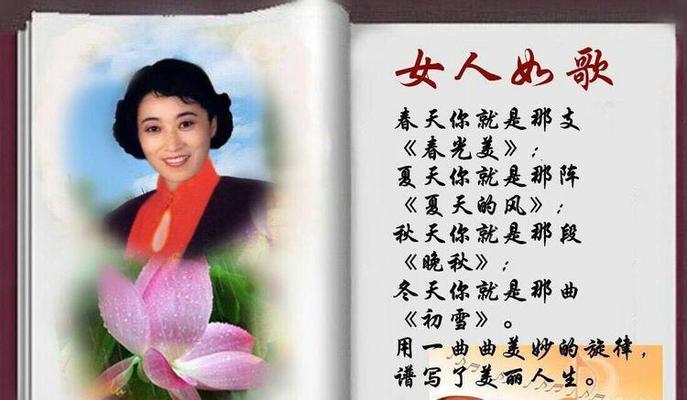 女人如歌
春天你就是那支
《春光美》；
夏天你就是那阵
《夏天的风》；
秋天你就是那段
《晚秋》；
冬天你就是那曲
《初雪》。
用一曲曲美妙的旋律，
谱写了美丽人生。